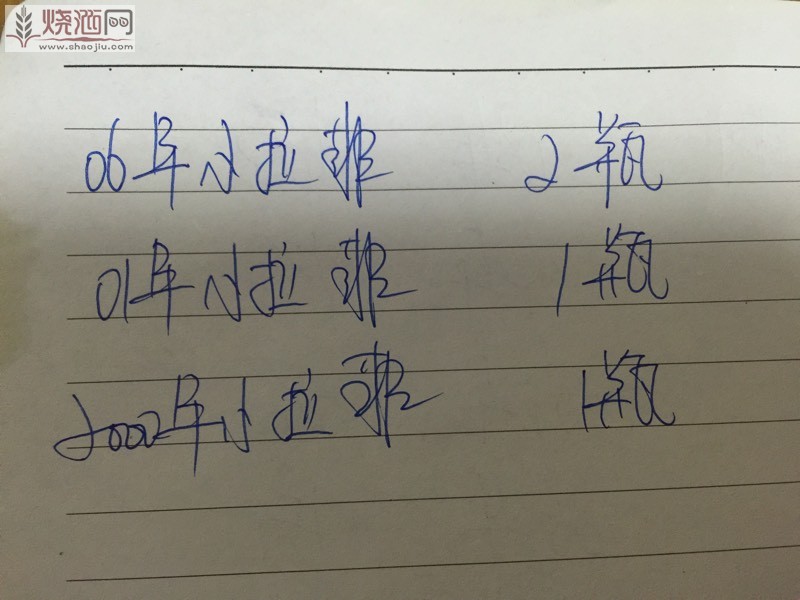 烧酒网
www.shaojiu.com
06年小拉菲 2瓶
01年小拉菲 1瓶
2000年小拉菲 1瓶